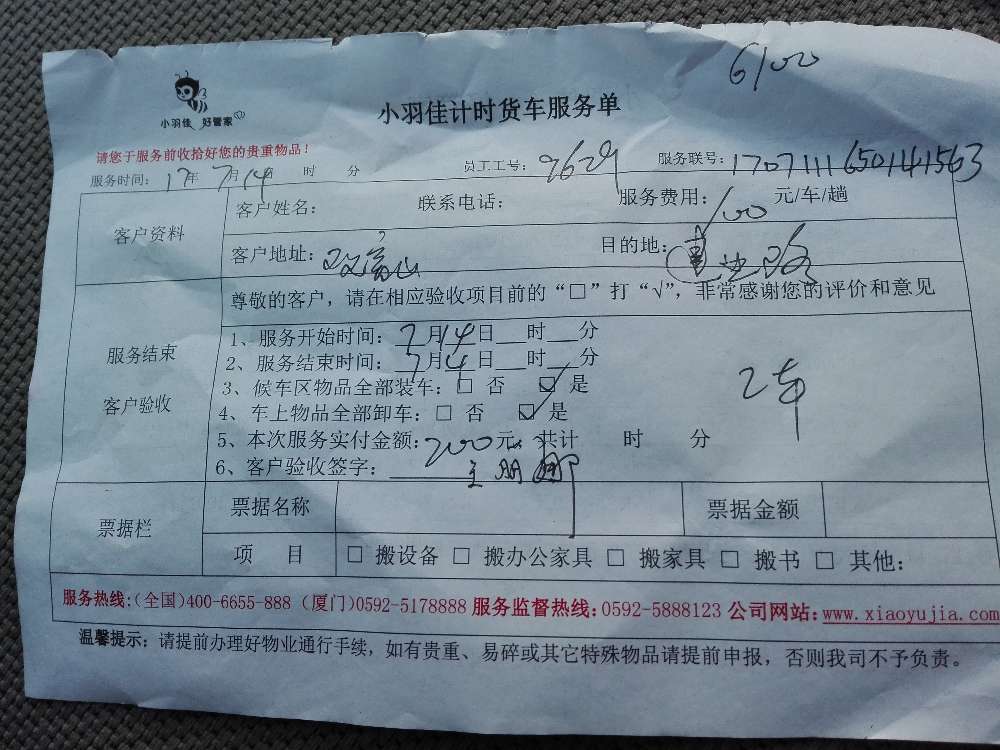 6100
小羽佳 好管家
小羽佳计时货车服务单
请您于服务前收拾好您的贵重物品！
服务时间: 17年 7月14 时 分 员工工号: 2629 服务联号: 1707111650141563
客户资料
客户姓名: 联系电话: 服务费用: 100 元/车/趟
客户地址: 富山 目的地: 路
服务结束
客户验收
尊敬的客户，请在相应验收项目前的“□”打“√”，非常感谢您的评价和意见
1、服务开始时间: 7月14日__时__分
2、服务结束时间: 7月4日__时__分
3、候车区物品全部装车: □ 否 ☑ 是
4、车上物品全部卸车: □ 否 ☑ 是
2车
5、本次服务实付金额: 200元，共计 时 分
6、客户验收签字: 王朋娜
票据栏
票据名称 票据金额
项 目 □ 搬设备 □ 搬办公家具 □ 搬家具 □ 搬书 □ 其他:
服务热线:(全国)400-6655-888 (厦门)0592-5178888 服务监督热线:0592-5888123 公司网站:www.xiaoyujia.com
温馨提示: 请提前办理好物业通行手续，如有贵重、易碎或其它特殊物品请提前申报，否则我司不予负责。